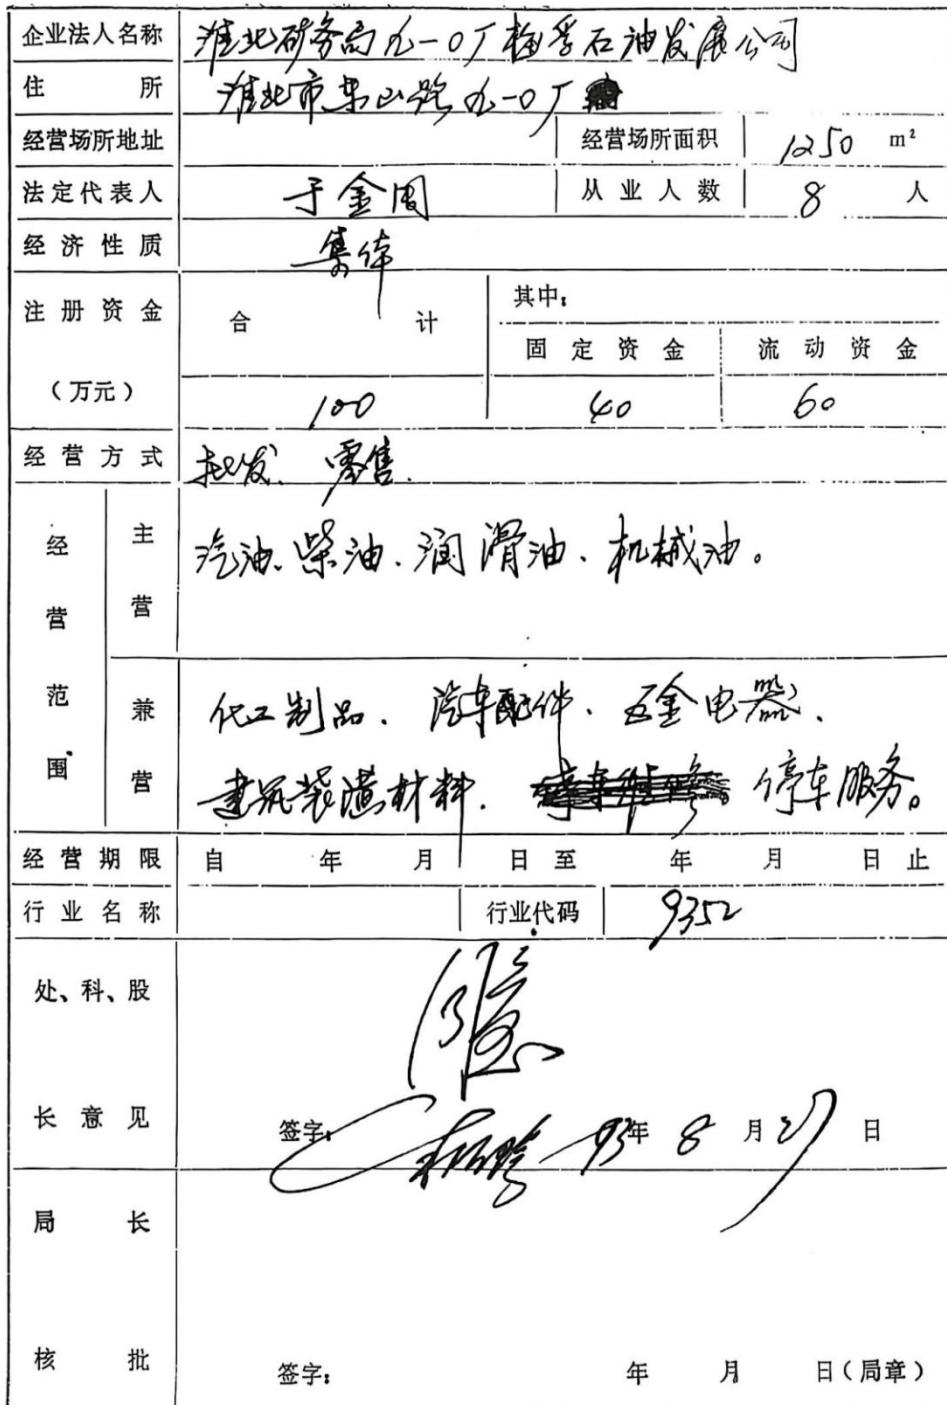 企业法人名称 淮北矿务局九一0厂 石油发展公司
住所 淮北市东山路九一0厂
经营场所地址 经营场所面积 1250 m²
法定代表人 于金周 从业人数 8 人
经济性质 集体
注册资金 合计 其中:
固定资金 流动资金
(万元) 100 40 60
经营方式 批发、零售.
经营范围 主营 汽油、柴油、润滑油、机械油。
兼营 化工制品、汽车配件、五金电器、
建筑装潢材料. 停车服务。
经营期限 自 年 月 日至 年 月 日止
行业名称 行业代码 9352
处、科、股
同意
长意见 签字: 93年 8 月 日
局长
核批 签字: 年 月 日(局章)